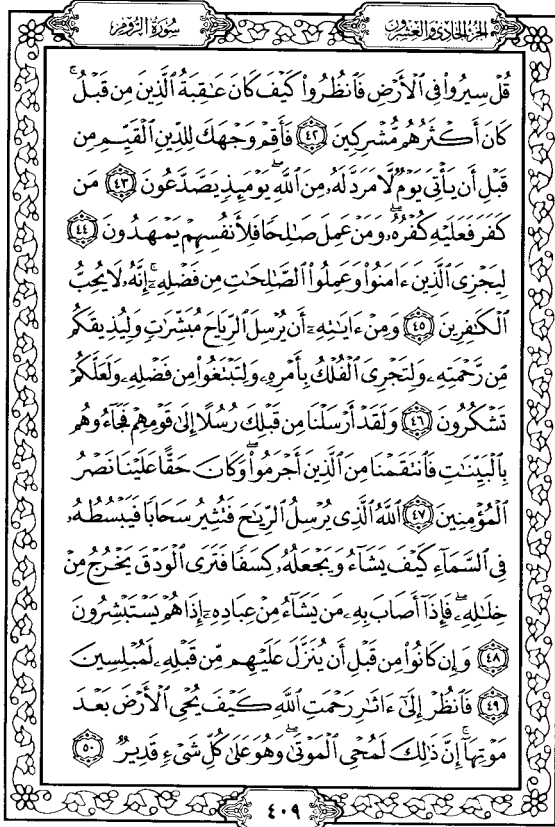 سُورَةُ الرُّومِ
الجُزْءُ الحَادِي وَالعِشْرُونَ
قُلْ سِيرُواْ فِى ٱلْأَرْضِ فَٱنظُرُواْ كَيْفَ كَانَ عَٰقِبَةُ ٱلَّذِينَ مِن قَبْلُۚ
كَانَ أَكْثَرُهُم مُّشْرِكِينَ ٤٢ فَأَقِمْ وَجْهَكَ لِلدِّينِ ٱلْقَيِّمِ مِن
قَبْلِ أَن يَأْتِىَ يَوْمٌ لَّا مَرَدَّ لَهُۥ مِنَ ٱللَّهِۖ يَوْمَئِذٍ يَصَّدَّعُونَ ٤٣ مَن
كَفَرَ فَعَلَيْهِ كُفْرُهُۥۖ وَمَنْ عَمِلَ صَٰلِحًا فَلِأَنفُسِهِمْ يَمْهَدُونَ ٤٤
لِيَجْزِىَ ٱلَّذِينَ ءَامَنُواْ وَعَمِلُواْ ٱلصَّٰلِحَٰتِ مِن فَضْلِهِۦٓۚ إِنَّهُۥ لَا يُحِبُّ
ٱلْكَٰفِرِينَ ٤٥ وَمِنْ ءَايَٰتِهِۦٓ أَن يُرْسِلَ ٱلرِّيَاحَ مُبَشِّرَٰتٍ وَلِيُذِيقَكُم
مِّن رَّحْمَتِهِۦ وَلِتَجْرِىَ ٱلْفُلْكُ بِأَمْرِهِۦ وَلِتَبْتَغُواْ مِن فَضْلِهِۦ وَلَعَلَّكُمْ
تَشْكُرُونَ ٤٦ وَلَقَدْ أَرْسَلْنَا مِن قَبْلِكَ رُسُلًا إِلَىٰ قَوْمِهِمْ فَجَآءُوهُم
بِٱلْبَيِّنَٰتِ فَٱنتَقَمْنَا مِنَ ٱلَّذِينَ أَجْرَمُواْۖ وَكَانَ حَقًّا عَلَيْنَا نَصْرُ
ٱلْمُؤْمِنِينَ ٤٧ ٱللَّهُ ٱلَّذِى يُرْسِلُ ٱلرِّيَٰحَ فَتُثِيرُ سَحَابًا فَيَبْسُطُهُۥ
فِى ٱلسَّمَآءِ كَيْفَ يَشَآءُ وَيَجْعَلُهُۥ كِسَفًا فَتَرَى ٱلْوَدْقَ يَخْرُجُ مِنْ
خِلَٰلِهِۦۖ فَإِذَآ أَصَابَ بِهِۦ مَن يَشَآءُ مِنْ عِبَادِهِۦٓ إِذَا هُمْ يَسْتَبْشِرُونَ
٤٨ وَإِن كَانُواْ مِن قَبْلِ أَن يُنَزَّلَ عَلَيْهِم مِّن قَبْلِهِۦ لَمُبْلِسِينَ
٤٩ فَٱنظُرْ إِلَىٰٓ ءَاثَٰرِ رَحْمَتِ ٱللَّهِ كَيْفَ يُحْىِ ٱلْأَرْضَ بَعْدَ
مَوْتِهَآۚ إِنَّ ذَٰلِكَ لَمُحْىِ ٱلْمَوْتَىٰۖ وَهُوَ عَلَىٰ كُلِّ شَىْءٍ قَدِيرٌ ٥٠
٤٠٩